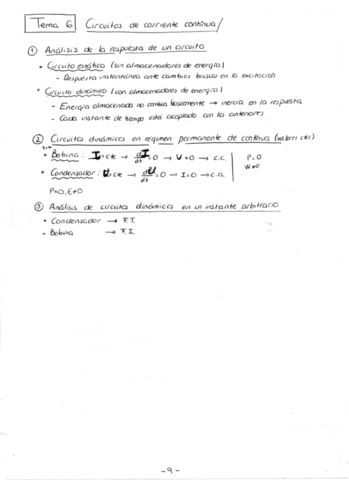 Tema 6 Circuitos de corriente continua/
① Análisis de la respuesta de un circuito
• Circuito estático (sin almacenadores de energía)
- Respuesta instantánea ante cambios bruscos en la excitación
• Circuito dinámico (con almacenadores de energía)
- Energía almacenada no cambia bruscamente → inercia en la respuesta
- Cada instante de tiempo está acoplado con los anteriores
② Circuitos dinámicos en régimen permanente de continua (valores ctes)
• Bobina: I=cte → dI/dt=0 → U=0 → c.c. | P=0
• Condensador: U=cte → dU/dt=0 → I=0 → c.a. | W≠0
P=0, E≠0
③ Análisis de circuitos dinámicos en un instante arbitrario
• Condensador → F.T.
- Bobina → F.I.
- 9 -